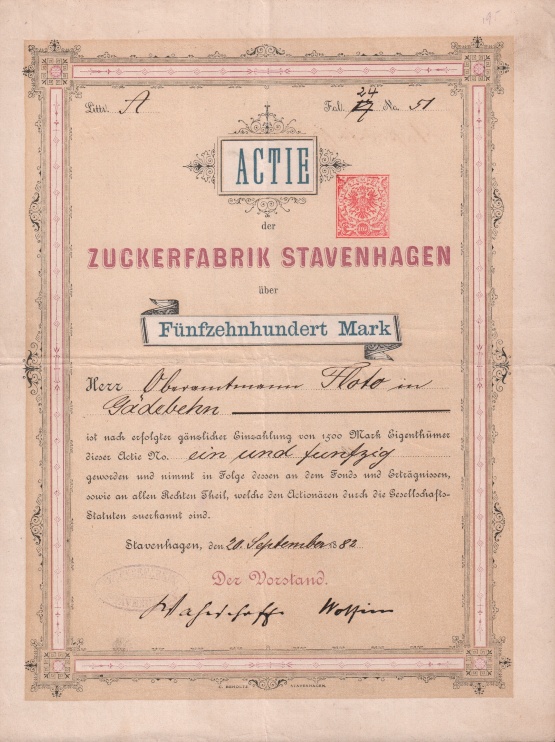 Littr. A
24
Fol. 17 No. 51
ACTIE
der
ZUCKERFABRIK STAVENHAGEN
über
Fünfzehnhundert Mark
Herr Oberamtmann Floto in
Gädebehn
ist nach erfolgter gänzlicher Einzahlung von 1500 Mark Eigenthümer
dieser Actie No. ein und funfzig
geworden und nimmt in Folge dessen an dem Fonds und Erträgnissen,
sowie an allen Rechten Theil, welche den Actionären durch die Gesellschafts-
Statuten zuerkannt sind.
Stavenhagen, den 20. September 1882
Der Vorstand.
STAVENHAGEN.